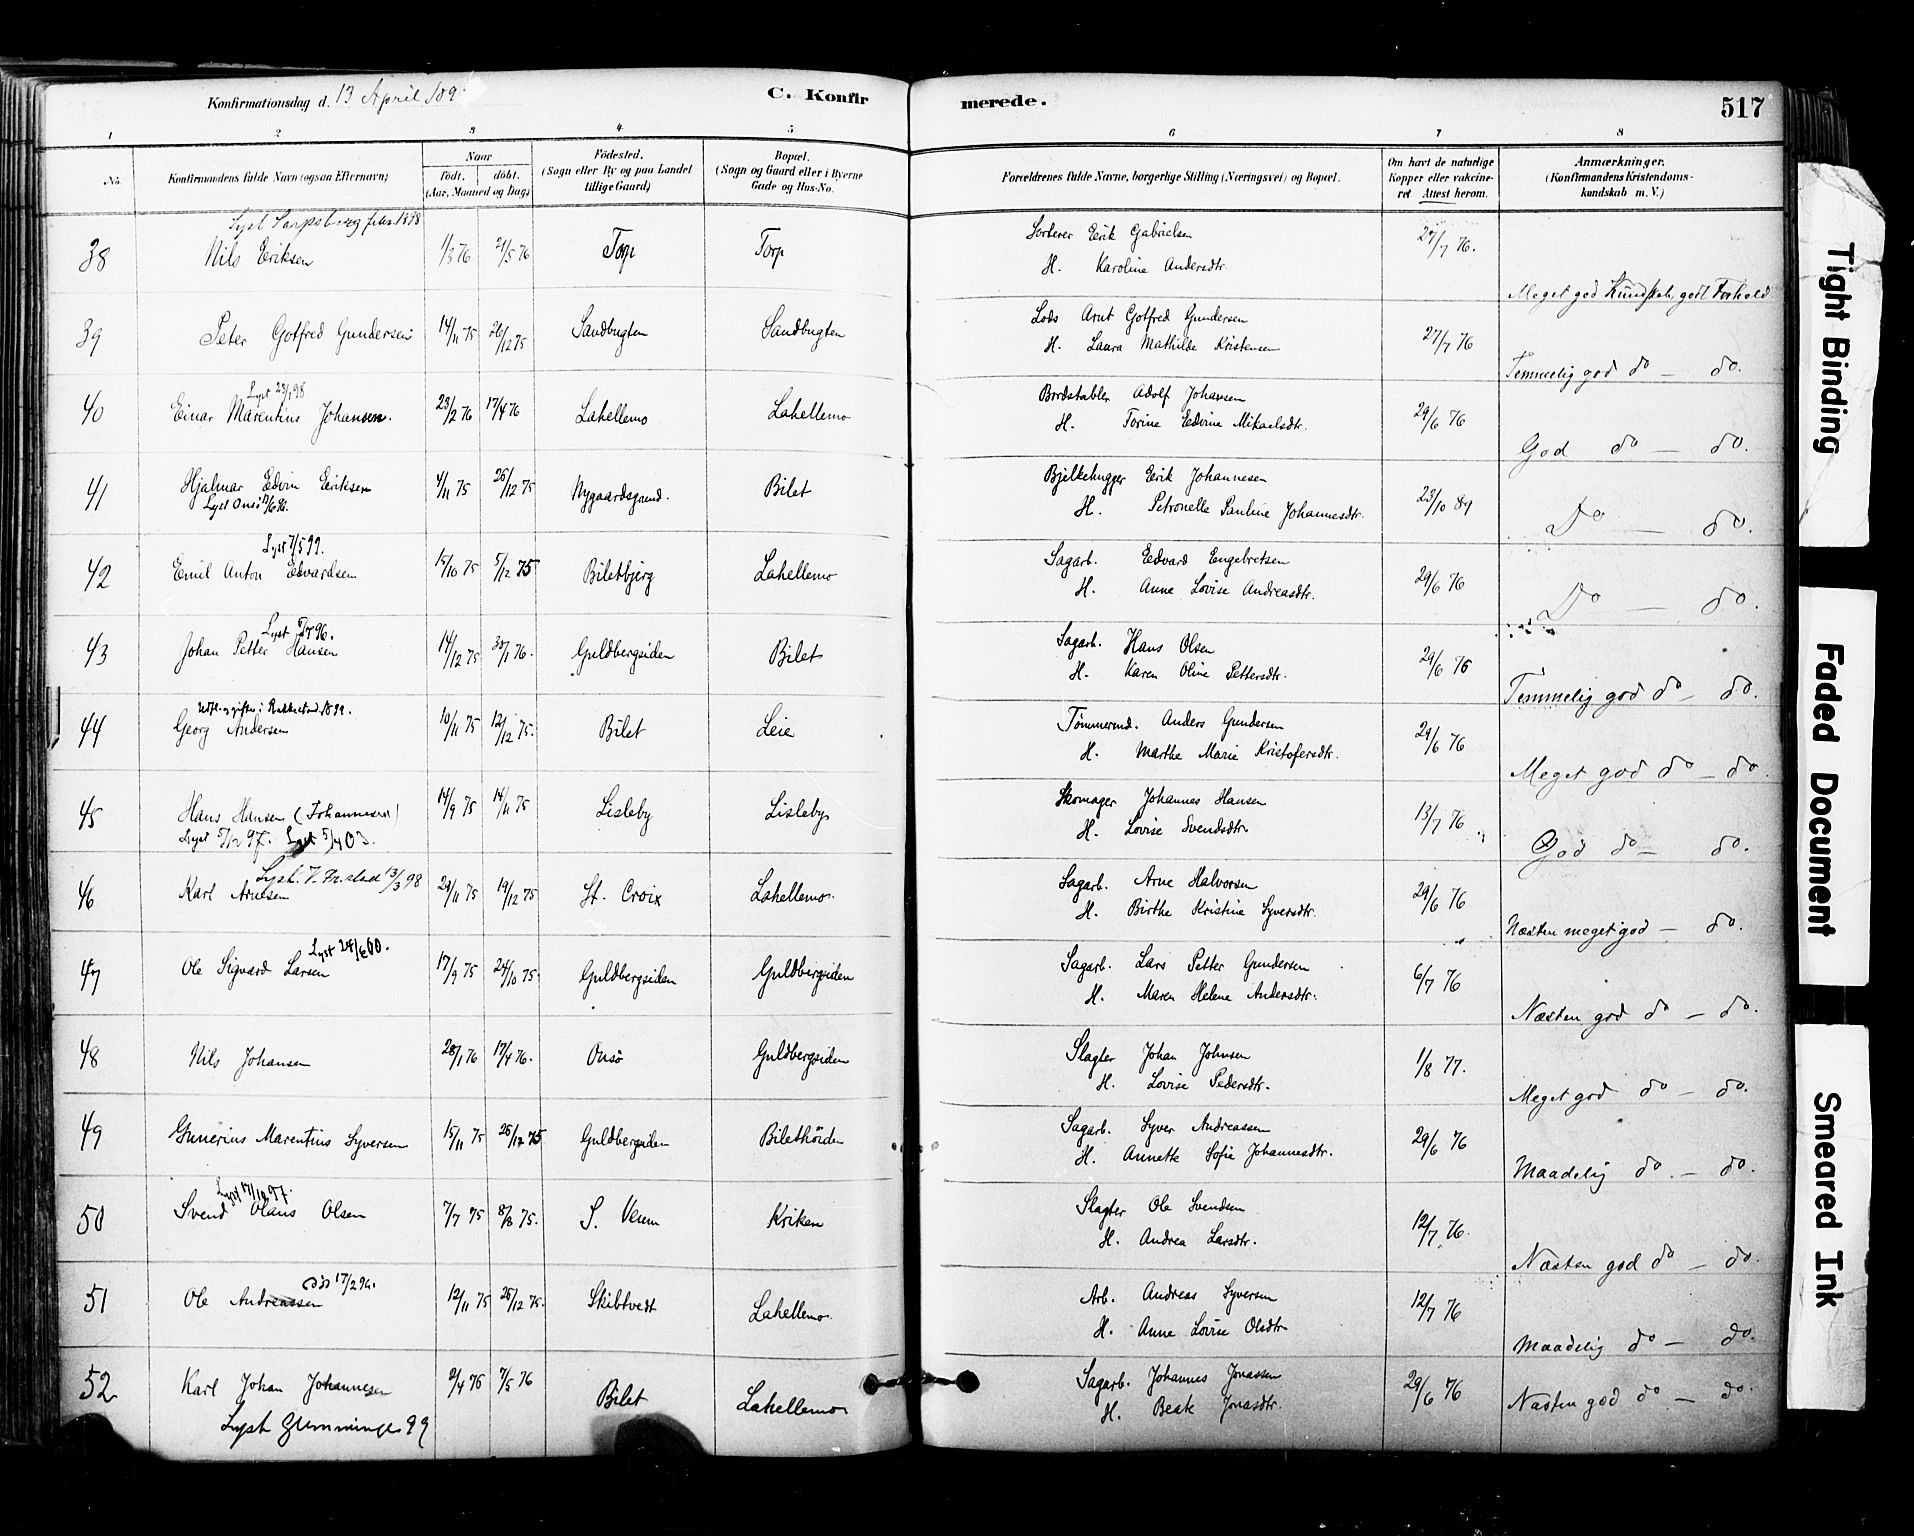 Konfirmationsdag d. 13 April 189
C. Konfirmerede.
517
1 2 3 4 5 6 7 8
No. Konfirmandens fulde Navn (ogsaa Efternavn) Naar Födt. döbt. (Aar, Maaned og Dag) Födested. (Sogn eller By og paa Landet tillige Gaard) Bopæl. (Sogn og Gaard eller i Byerne Gade og Hus-No. Forældrenes fulde Navne, borgerlige Stilling (Næringsvei) og Bopæl. Om havt de naturlige Kopper eller vakcineret Attest herom. Anmærkninger. (Konfirmandens Kristendomskundskab m. V.)
Lyst Sarpsborg febr. 1898
38 Nils Eriksen 1/3 76 21/5 76 Torp Torp Sorterer Erik Gabrielsen 27/7 76.
H. Karoline Andersdtr. Meget god Kundskab, godt Forhold
39 Peter Gotfred Gundersen 14/11 75 26/12 75 Sandbugten Sandbugten Lods Arnt Gotfred Gundersen 27/7 76
H. Laura Mathilde Kristensen Temmelig god do — do.
Lyst 23/1 98
40 Einar Marentius Johansen. 23/2 76 17/4 76 Lahellemo Lahellemo Bordstabler Adolf Johansen 29/6 76
H. Torine Edvine Mikaelsdtr. God do — do.
41 Hjalmar Edvin Eriksen 4/11 75 26/12 75 Nygaardsgrund. Bilet Bjelkehugger Erik Johannesen 23/10 89
Lyst Onsö
H. Petronelle Pauline Johannesdtr. Do — do.
Lyst 7/5 99.
42 Emil Anton Edvardsen 15/10 75 5/12 75 Biletbjerg Lahellemo Sagarb. Edvard Engebretsen 29/6 76
H. Anne Lovise Andreasdtr. Do — do.
Lyst 96.
43 Johan Petter Hansen 14/12 75 30/1 76. Guldbergsiden Bilet Sagarb. Hans Olsen 29/6 76
H. Karen Oline Pettersdtr. Temmelig god do — do.
Udfl. og gifter i Rakkestad 1899.
44 Georg Andersen 10/11 75 12/12 75. Bilet Leie Tömmermd. Anders Gundersen 29/6 76
H. Marthe Marie Kristofersdtr. Meget god do — do.
45 Hans Hansen (Johannesen) 14/9 75 14/11 75 Lisleby Lisleby Skomager Johannes Hansen 13/7 76
Lyst 5/12 97. Lyst 5/4 03.
H. Lovise Svendsdtr. God do — do.
Lyst. V. Fr.stad 13/3 98
46 Karl Arnesen 29/11 75 19/12 75 St. Croix Lahellemo. Sagarb. Arne Halvorsen 29/6 76
H. Birthe Kristine Syversdtr. Næsten meget god — do.
Lyst 24/6 00.
47 Ole Sigvard Larsen 17/9 75 24/10 75. Guldbergsiden Guldbergsiden Sagarb. Lars Petter Gundersen 6/7 76
H. Maren Helene Andersdtr. Næsten god do — do.
48 Nils Johansen 28/1 76 17/4 76. Onsö Guldbergsiden Slagter Johan Johnsen 1/8 77.
H. Lovise Pedersdtr. Meget god do — do.
49 Gunerius Marentius Syversen 15/11 75 26/12 75 Guldbergsiden Bilethöiden Sagarb. Syver Andreassen 29/6 76
H. Annette Sofie Johannesdtr. Maadelig do. — do.
Lyst 17/10 97.
50 Svend Olaus Olsen 7/7 75 8/8 75. S. Verum Kriken Slagter Ole Svendsen 12/7 76.
H. Andrea Larsdtr. Næsten god do — do.
död 17/2 94.
51 Ole Andreassen 12/11 75 26/12 75. Skibtvedt Lahellemo. Arb. Andreas Syversen 12/7 76
H. Anne Lovise Olsdtr Maadelig do — do.
52 Karl Johan Johannesen 2/4 76 7/5 76 Bilet Lahellemo Sagarb. Johannes Jonassen 29/6 76
H. Beate Jonasdtr. Næsten god do — do.
Lyst Glemminge 99
Tight Binding
Faded Document
Smeared Ink